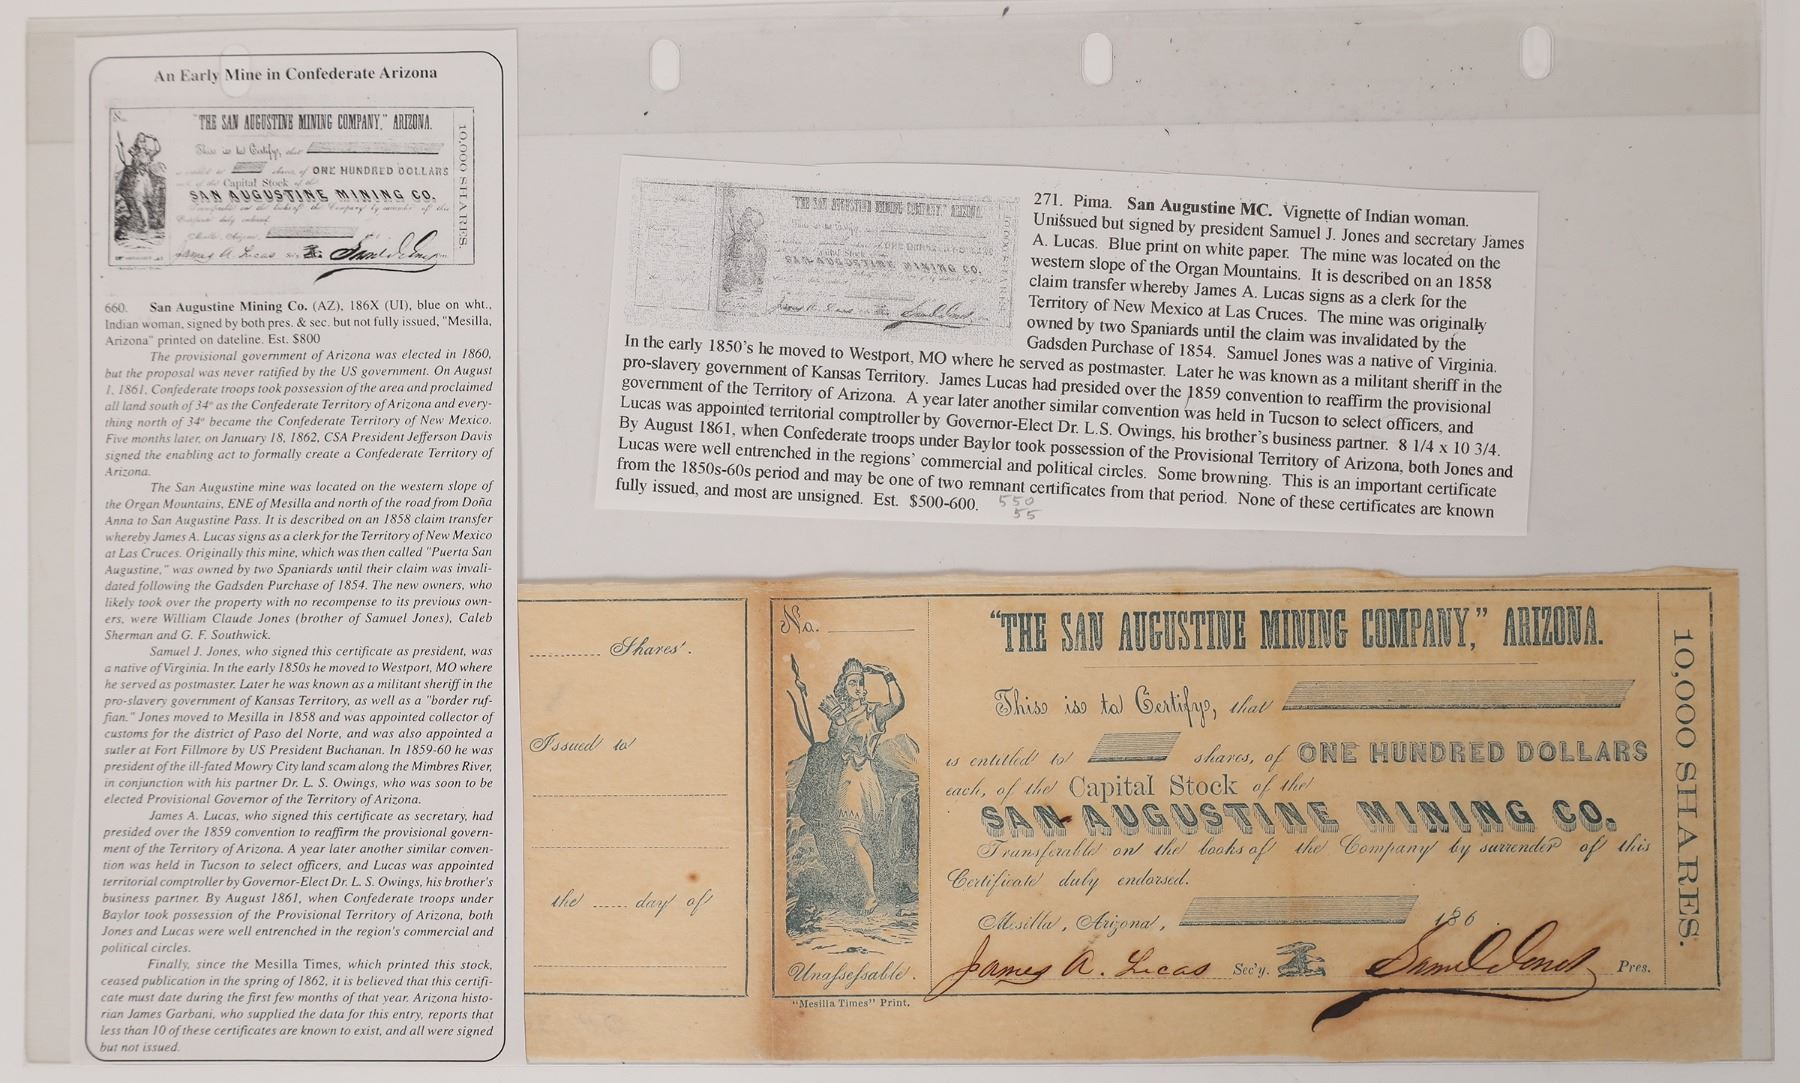 An Early Mine in Confederate Arizona
No.
"THE SAN AUGUSTINE MINING COMPANY," ARIZONA.
This is to Certify, that
shares, of ONE HUNDRED DOLLARS
Capital Stock of the
SAN AUGUSTINE MINING CO.
Mesilla, Arizona,
James A. Lucas
10,000 SHARES.
660. San Augustine Mining Co. (AZ), 186X (UI), blue on wht.,
Indian woman, signed by both pres. & sec. but not fully issued, "Mesilla,
Arizona" printed on dateline. Est. $800
The provisional government of Arizona was elected in 1860,
but the proposal was never ratified by the US government. On August
1, 1861, Confederate troops took possession of the area and proclaimed
all land south of 34° as the Confederate Territory of Arizona and every-
thing north of 34° became the Confederate Territory of New Mexico.
Five months later, on January 18, 1862, CSA President Jefferson Davis
signed the enabling act to formally create a Confederate Territory of
Arizona.
The San Augustine mine was located on the western slope of
the Organ Mountains, ENE of Mesilla and north of the road from Doña
Anna to San Augustine Pass. It is described on an 1858 claim transfer
whereby James A. Lucas signs as a clerk for the Territory of New Mexico
at Las Cruces. Originally this mine, which was then called "Puerta San
Augustine," was owned by two Spaniards until their claim was invali-
dated following the Gadsden Purchase of 1854. The new owners, who
likely took over the property with no recompense to its previous own-
ers, were William Claude Jones (brother of Samuel Jones), Caleb
Sherman and G. F. Southwick.
Samuel J. Jones, who signed this certificate as president, was
a native of Virginia. In the early 1850s he moved to Westport, MO where
he served as postmaster. Later he was known as a militant sheriff in the
pro-slavery government of Kansas Territory, as well as a "border ruf-
fian." Jones moved to Mesilla in 1858 and was appointed collector of
customs for the district of Paso del Norte, and was also appointed a
sutler at Fort Fillmore by US President Buchanan. In 1859-60 he was
president of the ill-fated Mowry City land scam along the Mimbres River,
in conjunction with his partner Dr. L. S. Owings, who was soon to be
elected Provisional Governor of the Territory of Arizona.
James A. Lucas, who signed this certificate as secretary, had
presided over the 1859 convention to reaffirm the provisional govern-
ment of the Territory of Arizona. A year later another similar conven-
tion was held in Tucson to select officers, and Lucas was appointed
territorial comptroller by Governor-Elect Dr. L. S. Owings, his brother's
business partner. By August 1861, when Confederate troops under
Baylor took possession of the Provisional Territory of Arizona, both
Jones and Lucas were well entrenched in the region's commercial and
political circles.
Finally, since the Mesilla Times, which printed this stock,
ceased publication in the spring of 1862, it is believed that this certifi-
cate must date during the first few months of that year. Arizona histo-
rian James Garbani, who supplied the data for this entry, reports that
less than 10 of these certificates are known to exist, and all were signed
but not issued.
"THE SAN AUGUSTINE MINING COMPANY," ARIZONA.
SAN AUGUSTINE MINING CO.
10,000 SHARES.
271. Pima. San Augustine MC. Vignette of Indian woman.
Unissued but signed by president Samuel J. Jones and secretary James
A. Lucas. Blue print on white paper. The mine was located on the
western slope of the Organ Mountains. It is described on an 1858
claim transfer whereby James A. Lucas signs as a clerk for the
Territory of New Mexico at Las Cruces. The mine was originally
owned by two Spaniards until the claim was invalidated by the
Gadsden Purchase of 1854. Samuel Jones was a native of Virginia.
In the early 1850's he moved to Westport, MO where he served as postmaster. Later he was known as a militant sheriff in the
pro-slavery government of Kansas Territory. James Lucas had presided over the 1859 convention to reaffirm the provisional
government of the Territory of Arizona. A year later another similar convention was held in Tucson to select officers, and
Lucas was appointed territorial comptroller by Governor-Elect Dr. L.S. Owings, his brother's business partner. 8 1/4 x 10 3/4.
By August 1861, when Confederate troops under Baylor took possession of the Provisional Territory of Arizona, both Jones and
Lucas were well entrenched in the regions' commercial and political circles. Some browning. This is an important certificate
from the 1850s-60s period and may be one of two remnant certificates from that period. None of these certificates are known
fully issued, and most are unsigned. Est. $500-600.
550
55
Shares.
Issued to
the ..... day of
No.
"THE SAN AUGUSTINE MINING COMPANY," ARIZONA.
This is to Certify, that
is entitled to shares, of ONE HUNDRED DOLLARS
each, of the Capital Stock of the
SAN AUGUSTINE MINING CO.
Transferable on the books of the Company by surrender of this
Certificate duly endorsed.
Mesilla, Arizona, 186 .
Unassessable. James A. Lucas Sec'y. Saml J Jones Pres.
"Mesilla Times" Print.
10,000 SHARES.